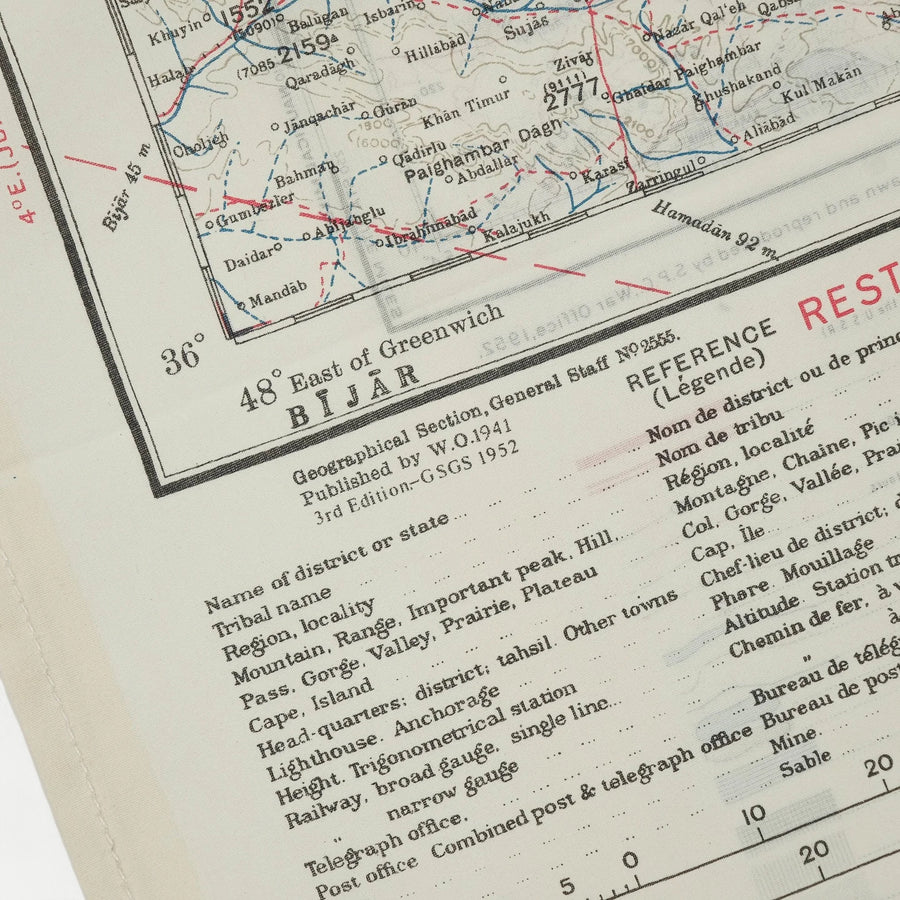 1552
(5090)
Khuyin
Balūgan
Isbarīn
Sujās
Nazar Qal'eh
2159
(7085
Hillābād
Zivar
(7000)
Halab
Qaradāgh
(9111)
2777
Ghafdar Paighambar
Khushakand
Kul Makān
Janqachār
Gūrān
Khān Timur
Aliābād
Qādirlu
Paighambar Dāgh
Abdallar
Karasf
Zarringul
Bahman
Bījār 45 m.
Gumbezler
Ibrahīmābād
Kalajukh
Hamadān 92 m.
Daidar
Mandāb
4°E.
36°
48° East of Greenwich
BĪJĀR
REST
Geographical Section, General Staff Nº 2555.
Published by W.O.1941
3rd Edition-GSGS 1952
REFERENCE
(Légende)
Name of district or state
Nom de district ou de
Tribal name
Nom de tribu
Region, locality
Région, localité
Mountain, Range, Important peak, Hill
Montagne, Chaîne, Pic
Pass, Gorge, Valley, Prairie, Plateau
Col, Gorge, Vallée,
Cape, Island
Cap, Île
Head-quarters; district; tahsil. Other towns
Chef-lieu de district;
Lighthouse. Anchorage
Phare. Mouillage
Height. Trigonometrical station
Altitude. Station
Railway, broad gauge, single line
Chemin de fer, à
" narrow gauge
" à
Telegraph office.
Bureau de
Post office Combined post & telegraph office
Bureau de
Mine.
Sable
5 0 10 20
20